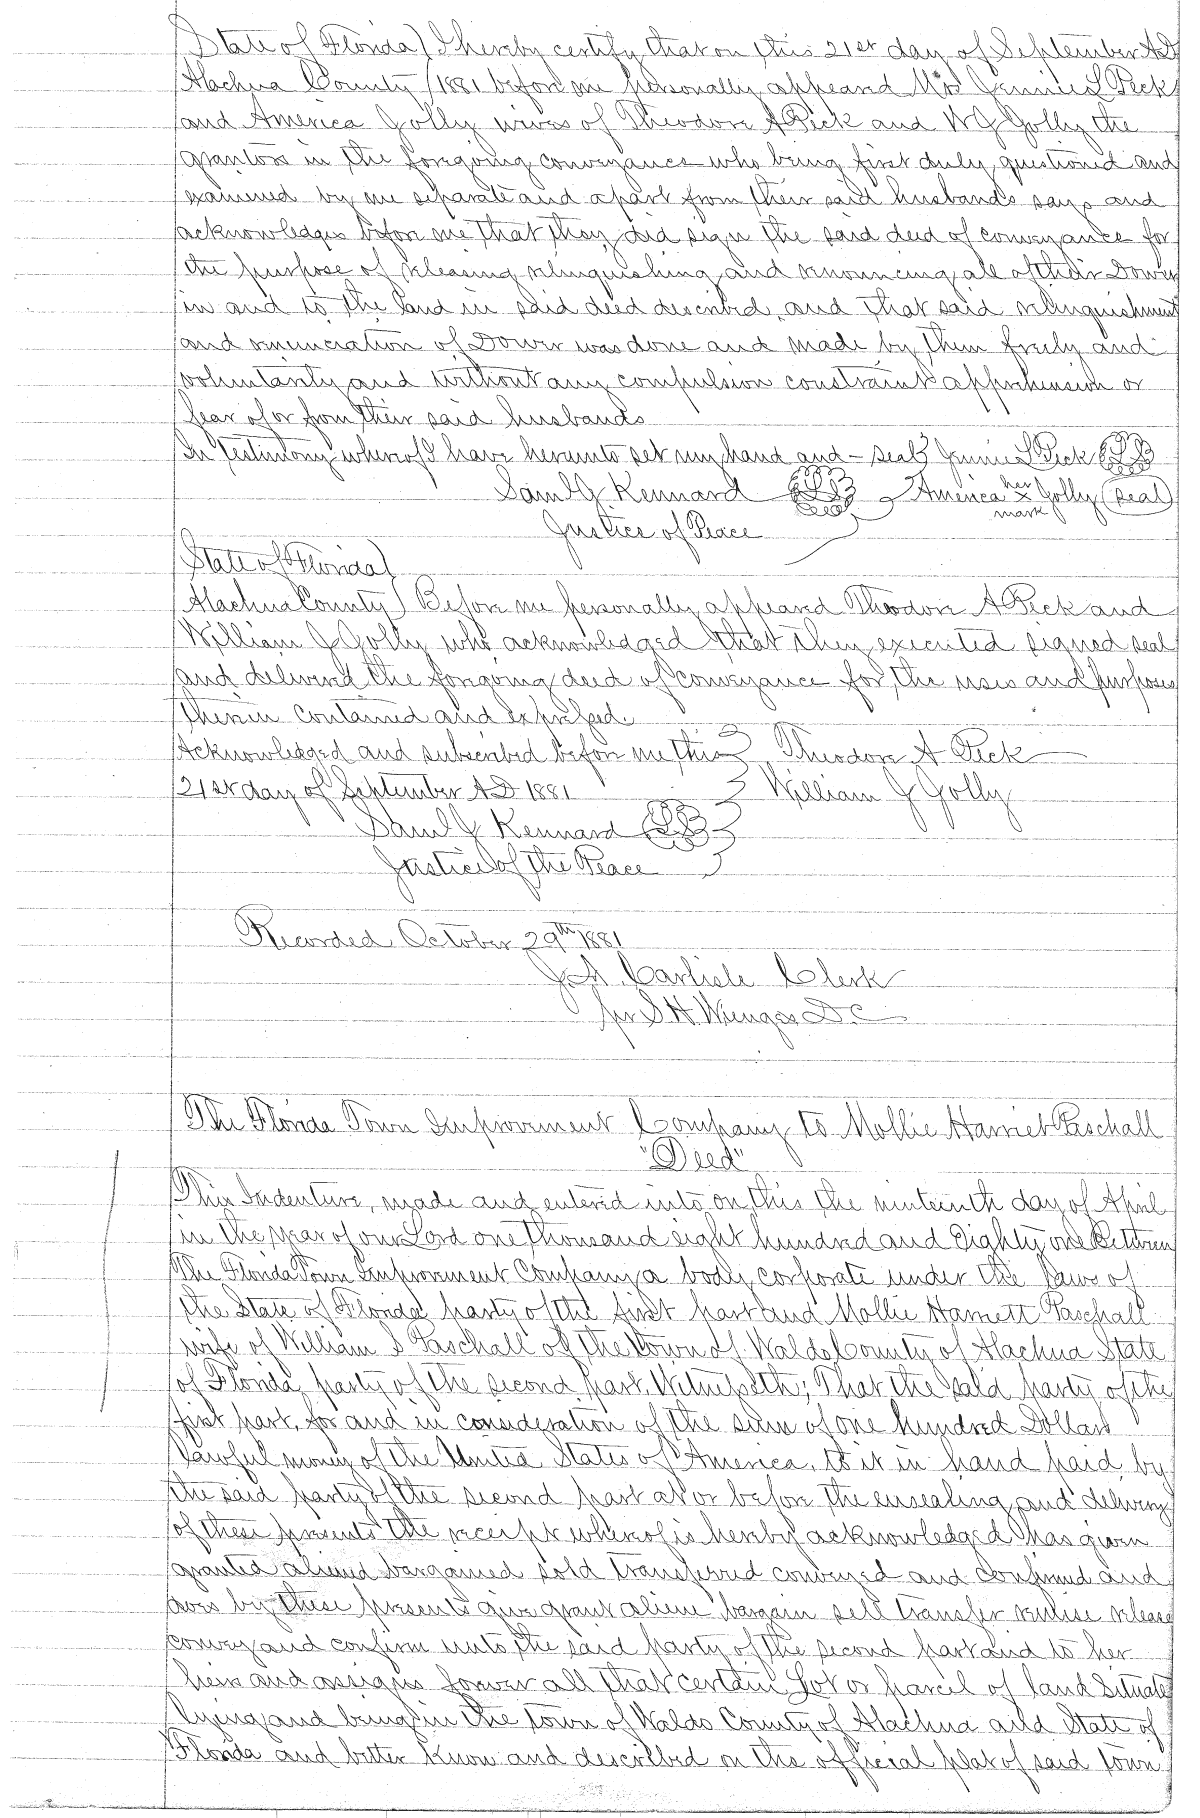 State of Florida) I hereby certify that on this 21st day of September AD
Alachua County (1881 before me personally appeared Mrs Jennie L Peck
and America Jolly wives of Theodore A Peck and W J Jolly the
grantors in the foregoing conveyance who being first duly questioned and
examined by me separate and apart from their said husbands says and
acknowledges before me that they did sign the said deed of conveyance for
the purpose of releasing relinquishing and renouncing all of their Dower
in and to the land in said deed described, and that said relinquishment
and renunciation of Dower was done and made by them freely and
voluntarily and without any compulsion constraint apprehension or
fear of or from their said husbands
In testimony whereof I have hereunto set my hand and - seal} Jennie L Peck
Saml J Kennard L S } America her x mark Jolly (seal)
Justice of Peace
State of Florida)
Alachua County) Before me personally appeared Theodore A Peck and
William J Jolly who acknowledged that they executed signed seal
and delivered the foregoing deed of conveyance for the uses and purposes
therein contained and expressed.
Acknowledged and subscribed before me this } Theodore A Peck
21st day of September AD 1881 } William J Jolly
Saml J Kennard L S
Justice of the Peace
Recorded October 29th 1881
Carlisle Clerk
per S H Wienges D.C
The Florida Town Improvement Company to Mollie Harriet Paschall
"Deed"
This Indenture, made and entered into on this the ninteenth day of April
in the year of our Lord one thousand eight hundred and Eighty one Between
The Florida Town Improvment Company a body corporate under the Laws of
the State of Florida party of the first part and Mollie Harriett Paschall
wife of William S Paschall of the town of Waldo County of Alachua State
of Florida, party of the second part, Witnesseth; That the said party of the
first part, for and in consideration of the sum of one hundred Dollars
lawful money of the United States of America, to it in hand paid by
the said party of the second part at or before the ensealing and delivery
of these presents the receipt whereof is hereby acknowledged has given
granted aliened bargained sold transferred conveyed and confirmed and
does by these presents give grant aliene bargain sell transfer remise release
convey and confirm unto the said party of the second part and to her
heirs and assigns forever all that certain Lot or parcel of land Situate
lying and being in the town of Waldo County of Alachua and State of
Florida and better know and described on the official plat of said town